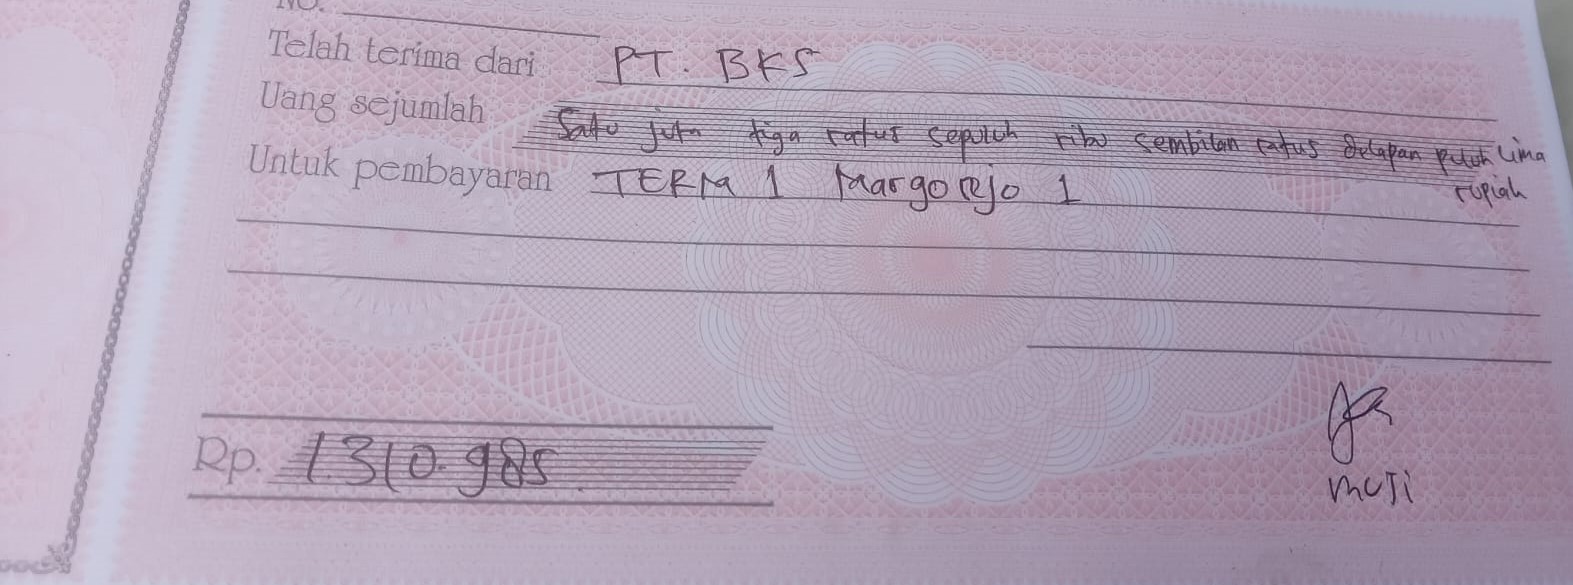 No.
Telah terima dari PT. BKS
Uang sejumlah Satu juta tiga ratus sepuluh ribu sembilan ratus delapan puluh lima
rupiah
Untuk pembayaran TERM 1 Margorejo 1
Rp. 1.310.985
muji